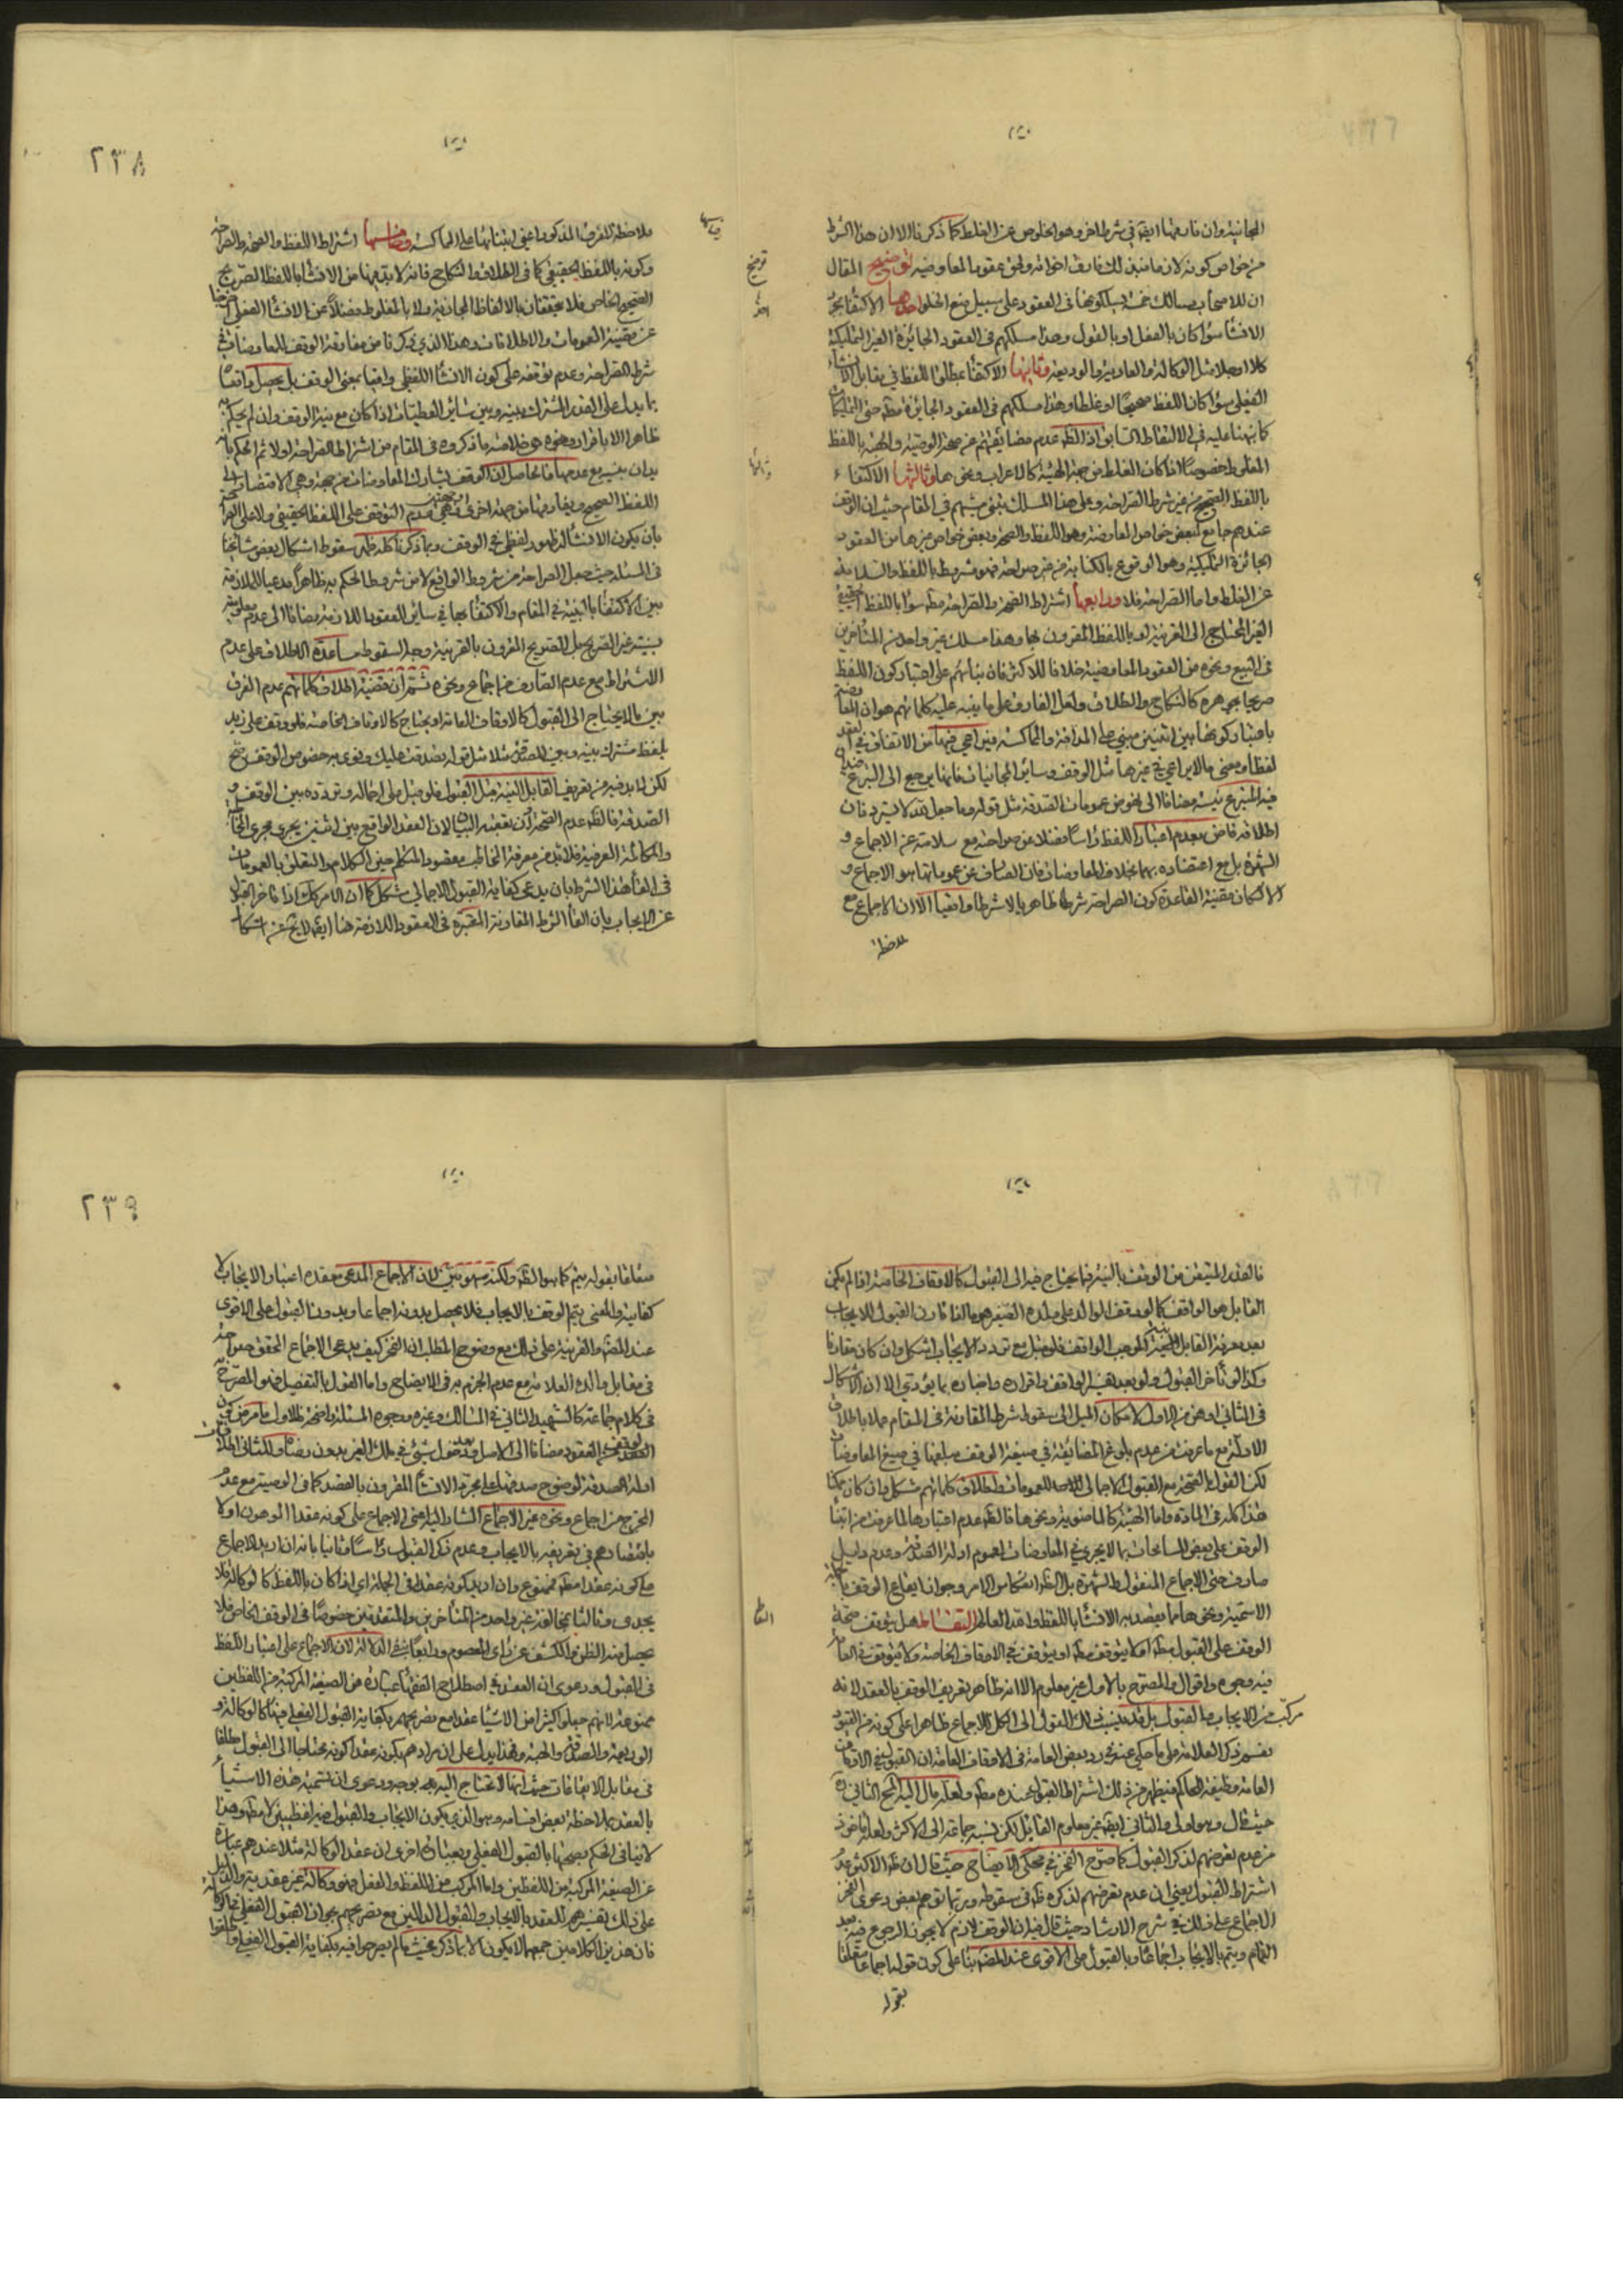 المجانية وان فارقها ايضا في شرط اخر وهو الخلوص عن الغلط كما ذكرنا الا ان هذا الشرط
من خواص كونه لازما فبذلك فارق اخواته ولحق عقود المعاوضية توضيح المقال
ان للاصحاب مسالك خمسة يسلكونها في العقود على سبيل منع الخلو احدها الاكتفاء بمجرد
الانشاء سواء كان بالفعل او بالقول وهذا مسلكهم في العقود الجائزة الغير التمليكية
كلا او جلا مثل الوكالة والعارية والوديعة وثانيها الاكتفاء بمطلق اللفظ في مقابل الانشاء
الفعلي سواء كان اللفظ صحيحا او غلطا وهذا مسلكهم في العقود الجائزة مطلقا حتى التمليكات
كما نبهنا عليه في الالتقاط السابق اذ الظاهر عدم مضايقتهم عن صحة الوصية والهبة باللفظ
المغلوط خصوصا اذا كان الغلط من جهة الهيئة كالاعراب ونحوها وثالثها الاكتفاء
باللفظ الصحيح من غير شرط الصراحة وعلى هذا المسلك ينبغي مشيهم في المقام حيث ان الوقف
عندهم جامع لبعض خواص المعاوضة وهو اللفظ والصحة وبعض خواص غيرها من العقود
الجائزة التمليكية وهو الوقوع بالكناية من غير صراحة فهو مشروط باللفظ والسلامة
عن الغلط واما الصراحة فلا ورابعها اشتراط الصحة والصراحة مطلقا سواء باللفظ الحقيقي
الغير المحتاج الى القرينة او باللفظ المقرون بها وهذا مسلك غير واحد من المتأخرين
في البيع ونحوه من العقود المعاوضية خلافا للاكثر فان بنائهم على اعتبار كون اللفظ
صريحا بجوهره كالنكاح والطلاق ولعل الفارق على ما ينبه عليه كلماتهم هو ان المعاوضة
باعتبار كونها بين اثنين مبني على المداقة والمماكسة فيراعى فيها من الاتفاق في العقد
لفظا ومعنى ما لا يراعى في غيرها مثل الوقف وساير المجانيات فانها يرجع الى التبرع
فيه المتبرع نيته مضافا الى خصوص عمومات الصدقة مثل قوله وما جعل لله لا يسترد فان
اطلاقه قاض بعدم اعتبار اللفظ راسا فضلا عن صراحته مع سلامته عن الاجماع و
الشهرة بل مع اعتضاده بهما بخلاف المعاوضات فان الصارف عن عموماتها هو الاجماع و
الا لكان مقتضى القاعدة كون الصراحة شرطا ظاهريا لا شرطا واقعيا الا ان الاجماع مع
ملاحظة
توضيح
ملاحظة الفرق المذكور اعني ابتنائها على المماكسة وخامسها اشتراط اللفظ والصحة والصراحة
وكونه باللفظ الحقيقي كما في الطلاق والنكاح فانه لابد فيهما من الانشاء باللفظ الصريح
الصحيح الخاص فلا يتحققان بالالفاظ المجازية ولا بالمغلوط فضلا عن الانشاء الفعلي
عن مقتضى العمومات والاطلاقات وهذا الذي ذكرنا من مفارقة الوقف للمعاوضات في
شرط الصراحة وعدم توقفه على كون الانشاء اللفظي وافيا بمعنى الوقف بل يحصل واقعا
بما يدل على القدر المشترك بينه وبين سائر العطيات اذا كان مع نية الوقف وان لم يحكم به
ظاهرا الا باقراره ونحوه هو خلاصة ما ذكروه في المقام من اشتراط الصراحة اولا ثم الحكم بانه
يدان بنيته مع عدمها فالحاصل ان الوقف يشارك المعاوضات من جهة وهي الاقتضاء الى
اللفظ الصحيح ويفارقها من جهة اخرى وهي عدم التوقف على اللفظ الحقيقي ولا على الصراحة
بان يكون الانشاء له ظهور لفظي في الوقف وبما ذكرنا كله ظهر سقوط اشكال بعض مشايخنا
في المسئلة حيث جعل الصراحة من شروط الواقع لا من شروط الحكم به ظاهرا مدعيا للملازمة
بين الاكتفاء بالنية في المقام والاكتفاء بها في سائر العقود اللازمة مضافا الى عدم
بنيته غير الصريح بل الصريح المقرون بالقرينة وجه السقوط مساعدة الاطلاق على عدم
الاشتراط مع عدم الصارف من اجماع ونحوه ثم ان قضية اطلاق كلماتهم عدم الفرق
بين ما لا يحتاج الى القبول كالاوقاف العامة او يحتاج كالاوقاف الخاصة فلو وقف على زيد
بلفظ مشترك بينه وبين الصدقة مثلا مثل قوله تصدقت عليك ونوى به خصوص الوقف صح
لكن لابد فيه من تعريف القابل النية قبل القبول فلو قبل على اجماله وتردده بين الوقف و
الصدقة فالظاهر عدم الصحة وان تعقبه البيان لان العقد الواقع بين اثنين يجري مجرى
والمكالمة العرفية فلابد من معرفة المخاطب مقصود المتكلم حين الكلام والتعلق بالعمومات
في الغاء هذا الشرط بان يدعى كفاية القبول الاجمالي مشكل كما ان الامر كك اذا تاخر القبول
عن الايجاب بان الغاء الشرط المقارنة المعتبرة في العقود اللازمة هنا ايضا لا يخ عن اشكال
٢٣٨
فالقدر المتيقن من الوقف بالنية فيما يحتاج فيه الى القبول كالاوقاف الخاصة اذا لم يكن
القابل هو الواقف كما لو وقف الوالد على ولده الصغير هو ما اذا قارن القبول للايجاب
بعد معرفة القابل نية الموجب الواقف فلو قبل مع تردد الايجاب اشكل وان كان مقارنا
وكذا لو تأخر القبول ولو بعد الواقف واقراره واخباره بما يؤدي الا ان الاشكال
في الثاني اوهن من الاول لامكان الميل الى سقوط شرط المقارنة في المقام عملا باطلاق
الادلة مع ما عرفت من عدم بلوغ المضايقة في صيغة الوقف مبلغها في صيغ المعاوضات
لكن القول بالصحة مع القبول الاجمالي للعمومات واطلاق كلماتهم مشكل وان كان ممكنا
هذا كله في المادة واما الهيئة كالماضوية ونحوها فالظاهر عدم اعتبارها لما عرفت من ابتناء
الوقف على بعض المسامحات بما لا يجري في المعاوضات لعموم ادلة الصدقة وعدم دليل
صارف حتى الاجماع المنقول والشهرة بل الظاهر انعكاس الامر وجواز ايقاع الوقف بالجملة
الاسمية ونحوها مما يقصد به الانشاء باللفظ والله العالم التقاط هل يتوقف صحة
الوقف على القبول مطلقا او لا يتوقف مطلقا او يتوقف في الاوقاف الخاصة ولا يتوقف في العامة
فيه وجوه واقوال والمصرح بالاول غير معلوم الا انه ظاهر تعريف الوقف بالعقد لانه
مركب من الايجاب والقبول بل قد ينسب ذلك القول الى الكل للاجماع ظاهرا على كونه من العقود
نعم ذكر العلامة على ما حكي عنه في رد بعض العامة في الاوقاف العامة ان القبول في الاوقاف
العامة وظيفة الحاكم فيظهر من ذلك اشتراط القبول عنده مطلقا ولعله مال اليه المحقق الثاني
حيث قال وهو اولى والثاني ايضا غير معلوم القائل لكن نسبه جماعة الى الاكثر ولعله مأخوذ
من عدم تعرضهم لذكر القبول كما صرح الفخر في محكي الايضاح حيث قال ان ظاهر الاكثر عدم
اشتراط القبول يعني ان عدم تعرضهم لذكره ظاهر في سقوطه وربما توهم بعض دعوى الفخر
الاجماع على ذلك في شرح الارشاد حيث قال فيه ان الوقف لازم لا يجوز الرجوع فيه بعد
التمام ويتم بالايجاب اجماعا وبالقبول على الاقوى عند المصنف بناء على كون قوله اجماعا متعلقا
بقوله
متعلقا بقوله يتم كما هو الظاهر ولكنه سهو بين لان الاجماع المدعى معقده اعتبار الايجاب لا
كفايته والمعنى يتم الوقف بالايجاب فلا يحصل بدونه اجماعا وبدون القبول على الاقوى
عند المصنف والقرينة على ذلك مع وضوح المطلب ان الفخر كيف يدعي الاجماع المحقق
في مقابل والده العلامة مع عدم الجزم به في الايضاح واما القول بالتفصيل فهو المصرح به
في كلام جماعة كالشهيد الثاني في المسالك وغيره ووجوه المسئلة واضحة للاول ما مر من كون
الوقف من العقود مضافا الى الاصل وبعد دخول شيء في ملك الغير بدون رضاه وللثاني اطلاقات
ادلة الصدقة لوضوح صدقها على مجرد الانشاء المقرون بالقصد كما في الوصية مع عدم
المخرج من اجماع ونحوه غير الاجماع المشار اليه اعني الاجماع على كونه عقدا الموهون اولا
باقتصارهم في تعريفه بالايجاب وعدم ذكر القبول راسا وثانيا بانه ان اريد الاجماع
على كونه عقدا مطلقا ممنوع وان اريد كونه عقدا في الجملة اي اذا كان باللفظ كالوكالة فلا
يجدي وثالثا بمخالفة غير واحد من المتأخرين والمتقدمين خصوصا في الوقف الخاص فلا
يحصل منه الظن والكشف عن رأي المعصوم ورابعا بمنع الدلالة لان الاجماع على اعتبار اللفظ
في القبول ودعوى ان العقد في اصطلاح الفقهاء عبارة عن الصيغة المركبة من اللفظين
ممنوعة لانهم جعلوا كثيرا من الاشياء عقدا مع تصريحهم بكفاية القبول الفعلي فيها كالوكالة و
الوديعة والصدقة والهبة وهذا يدل على ان مرادهم بكونه عقدا كونه محتاجا الى القبول مطلقا
في مقابل الايقاعات حيث انها لا تحتاج اليه بوجه ودعوى ان تسمية هذه الاشياء
بالعقد بملاحظة بعض اقسامه وهو الذي يكون الايجاب والقبول فيه لفظيين لا مطلقا وهذا
لا ينافي الحكم بصحتها بالقبول الفعلي وبعبارة اخرى ان عقد الوكالة مثلا عندهم عبارة
عن الصيغة المركبة من اللفظين واما المركب من اللفظ والفعل فهو وكالة غير عقدية والدليل
على ذلك تفسيرهم للعقد بالايجاب والقبول الدالين مع تصريحهم بجواز القبول الفعلي في الوكالة
فان هذين الكلامين جمعهما لا يكون الا بما ذكر بحيث ما لم يصرحوا فيه بكفاية القبول الفعلي
٢٣٩